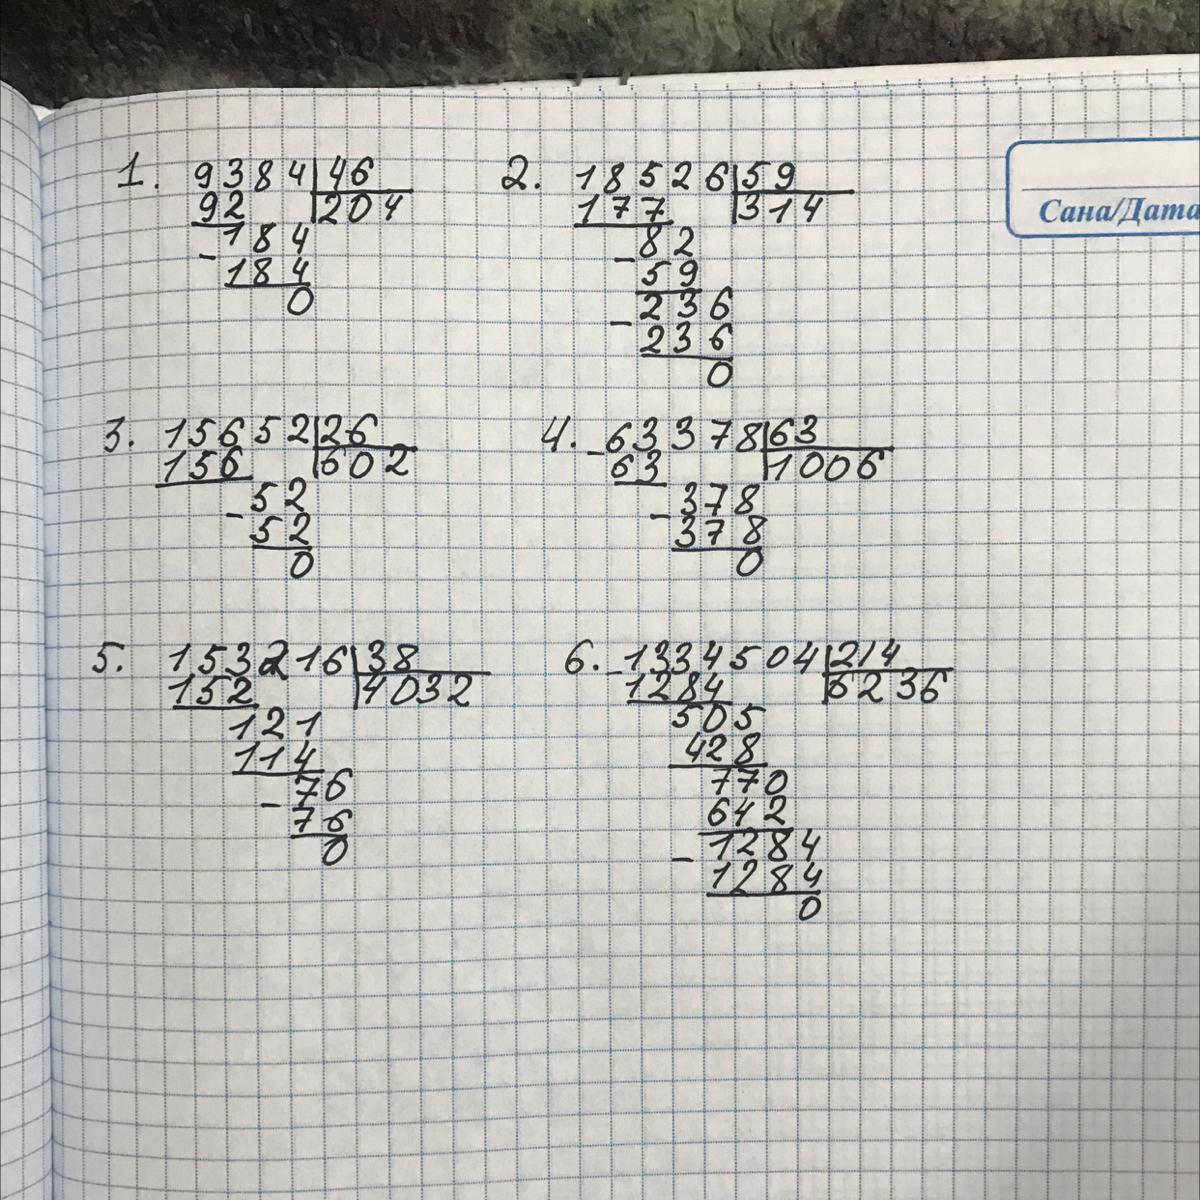 1. 9384 46
92 204
- 184
184
0
2. 18526 59
177 314
- 82
59
- 236
236
0
Сана/Дата
3. 15652 26
156 602
- 52
52
0
4. - 63378 63
63 1006
- 378
378
0
5. 153216 38
152 4032
121
114
- 76
76
0
6. - 1334504 214
1284 6236
505
428
770
642
- 1284
1284
0